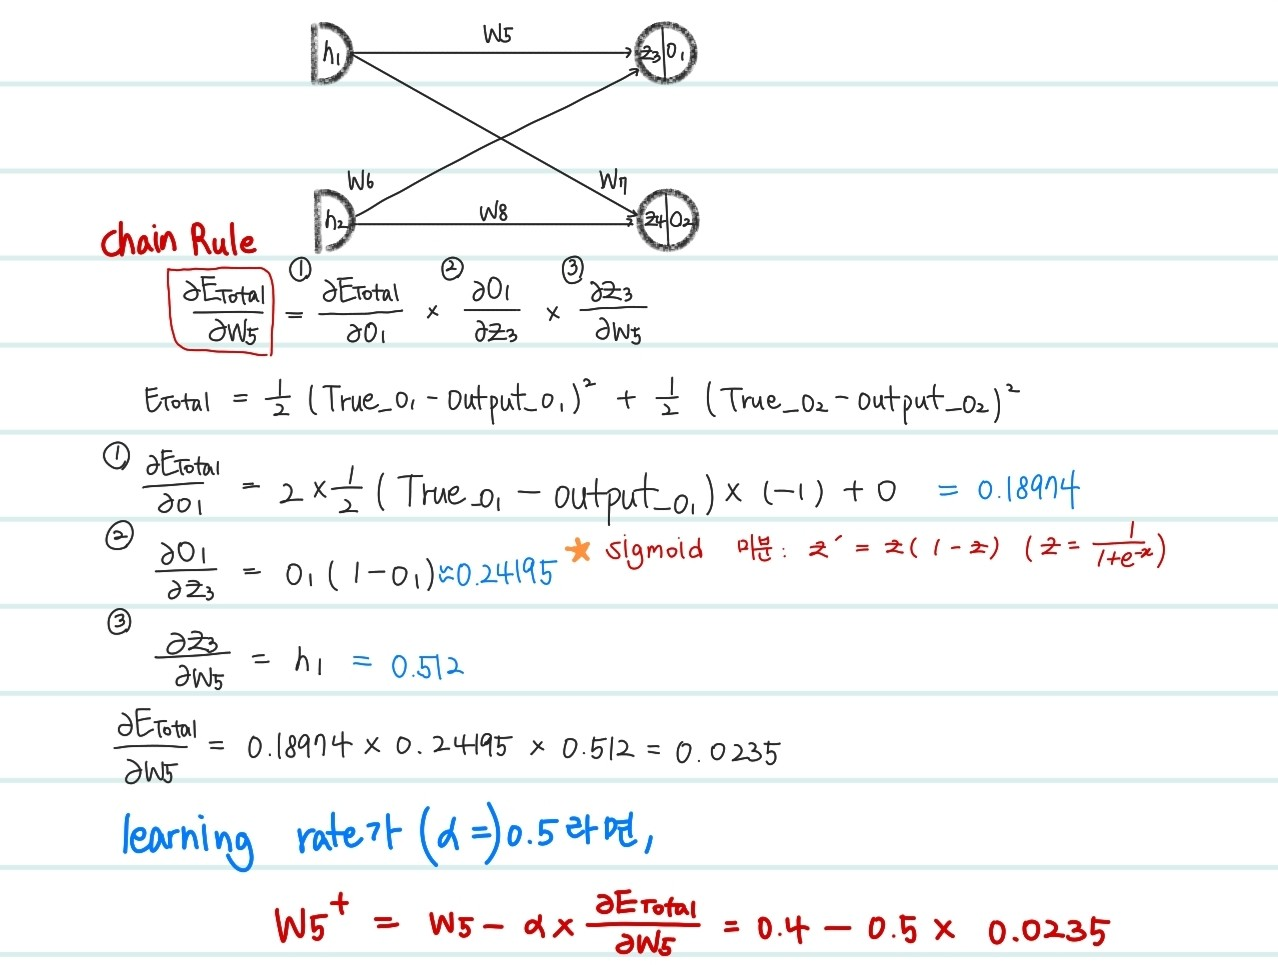 W5
h1 z3 O1
W6 W7
h2 W8 z4 O2
Chain Rule
① ② ③
∂ETotal/∂W5 = ∂ETotal/∂O1 × ∂O1/∂z3 × ∂z3/∂W5
ETotal = 1/2 (True_O1 - output_O1)² + 1/2 (True_O2 - output_O2)²
① ∂ETotal/∂O1 = 2 × 1/2 (True_O1 - output_O1) × (-1) + 0 = 0.18974
② ∂O1/∂z3 = O1 (1-O1) ≈ 0.24195 ★ sigmoid 미분: z′ = z(1-z) (z = 1/1+e^-x)
③ ∂z3/∂W5 = h1 = 0.512
∂ETotal/∂W5 = 0.18974 × 0.24195 × 0.512 = 0.0235
learning rate가 (α=) 0.5라면,
W5⁺ = W5 - α × ∂ETotal/∂W5 = 0.4 - 0.5 × 0.0235